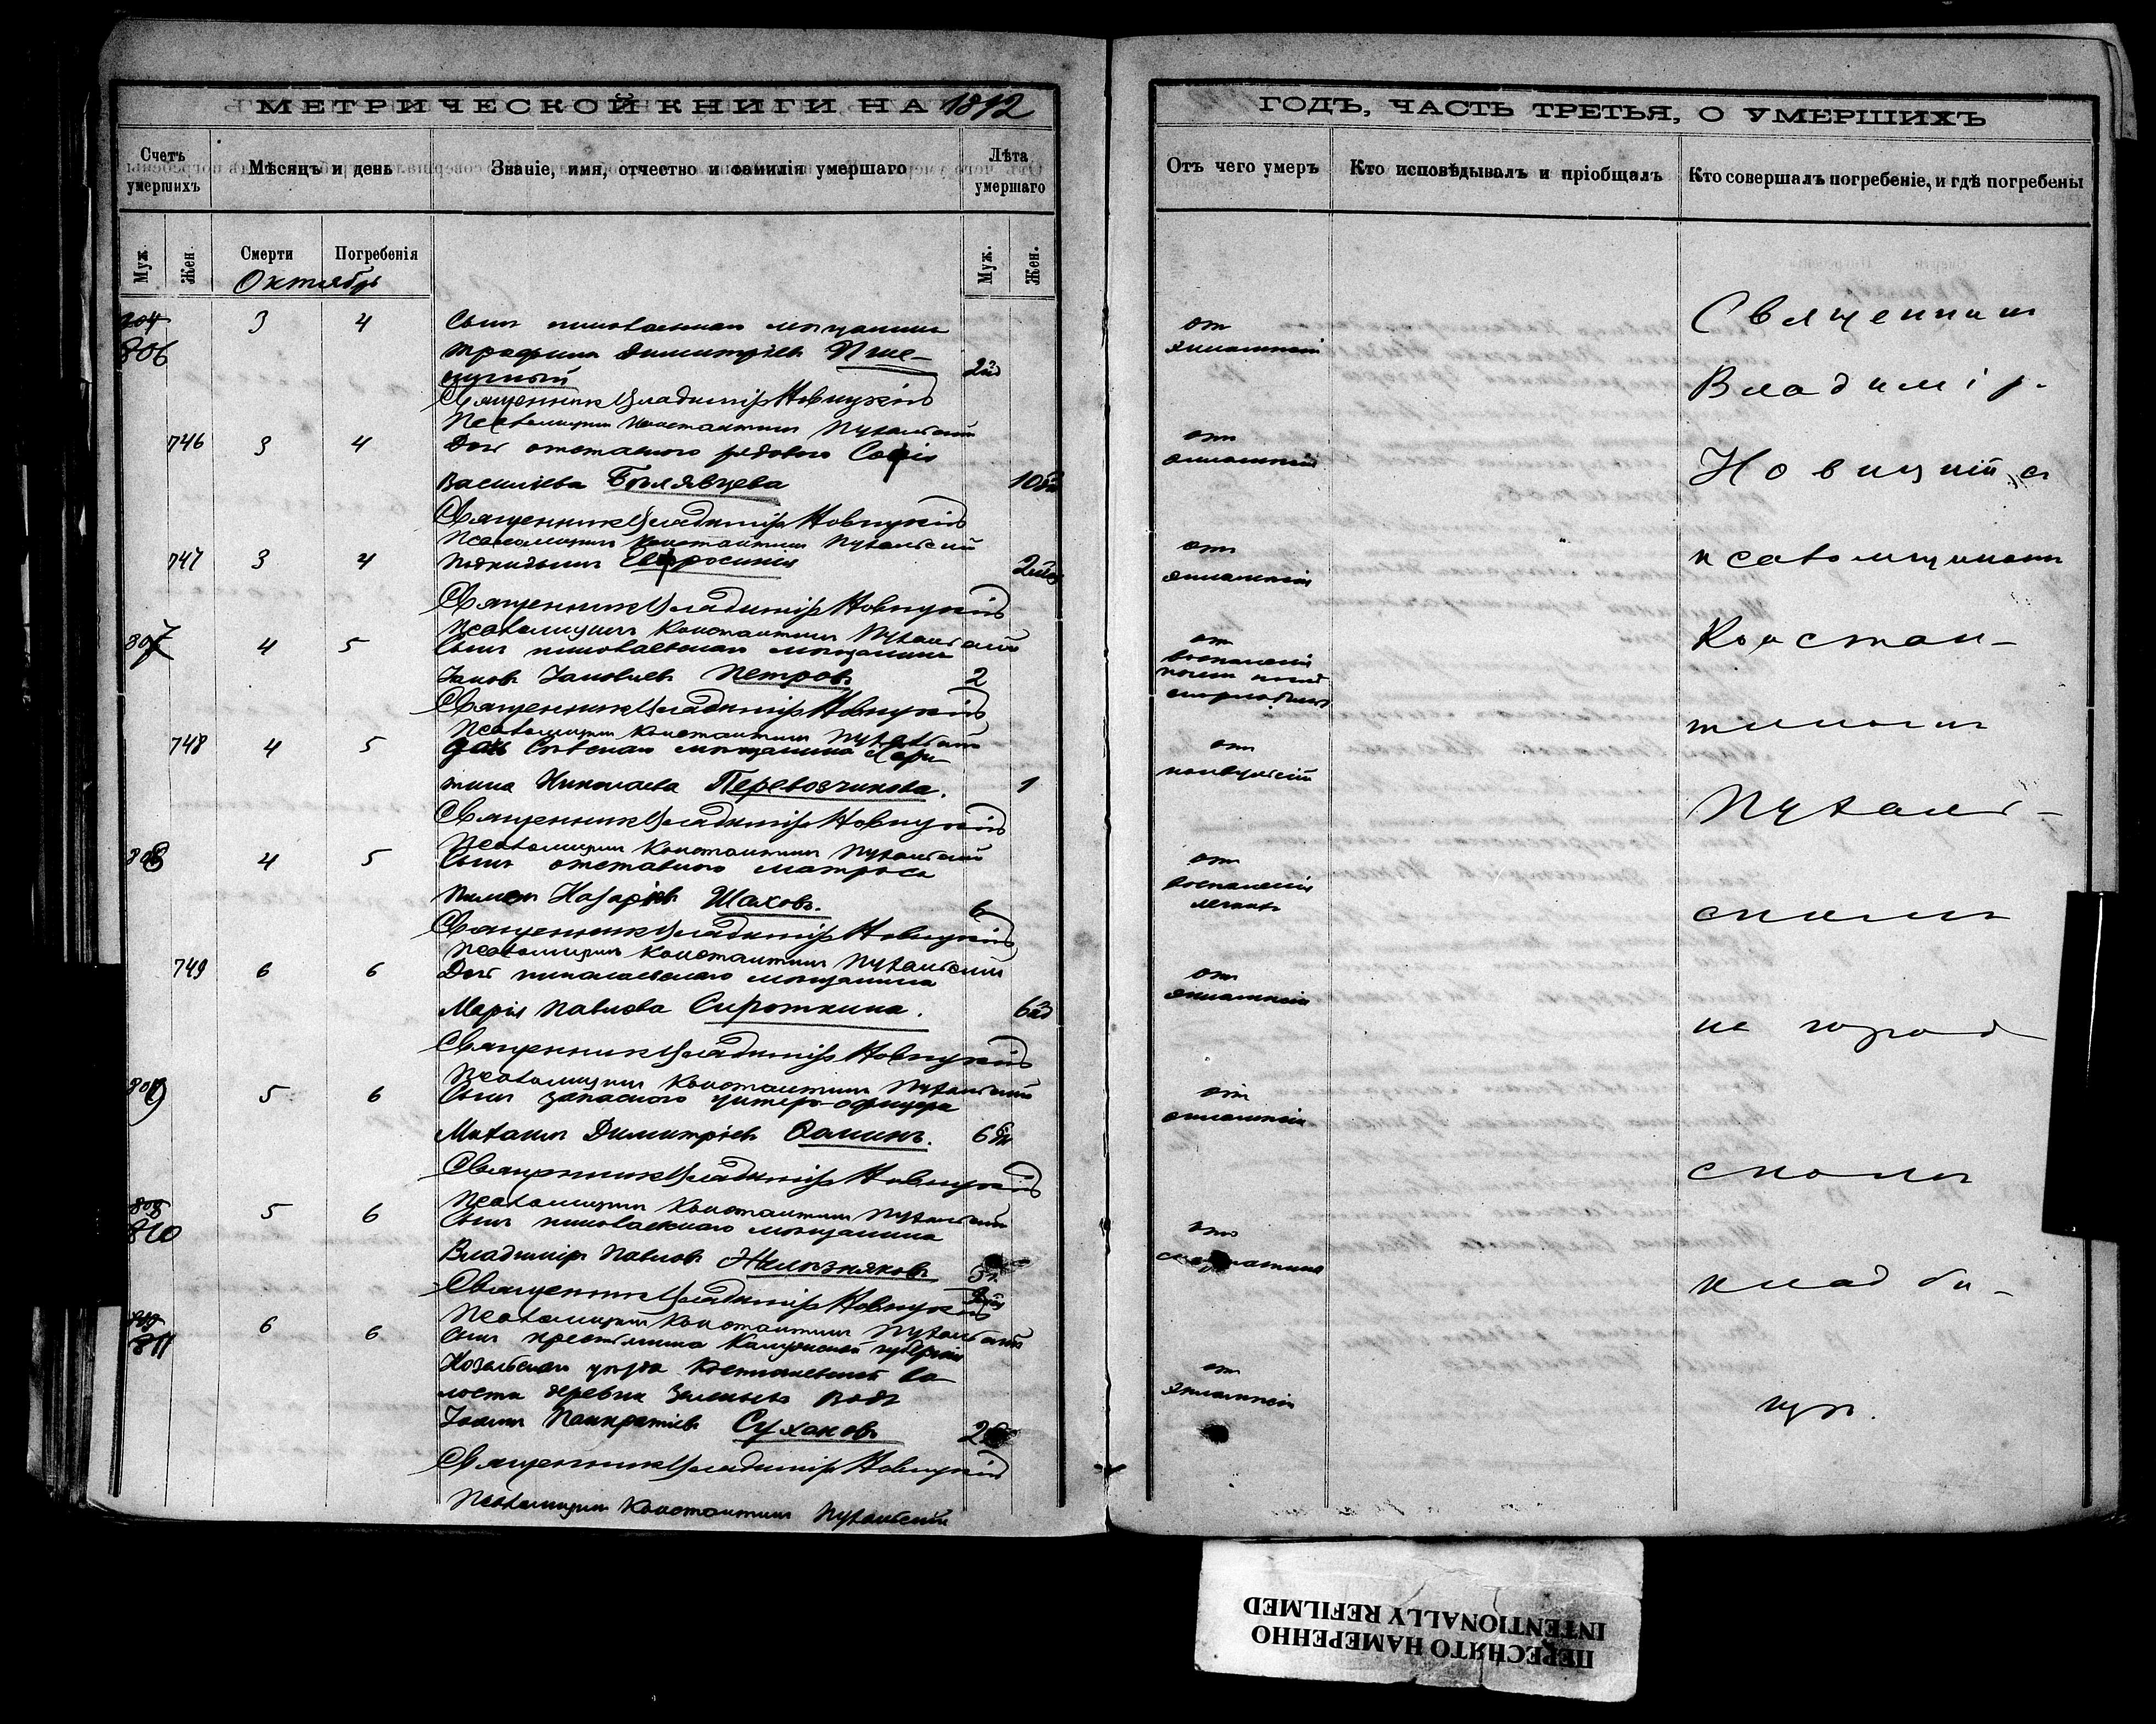 МЕТРИЧЕСКОЙ КНИГИ НА 1892
ГОДЪ, ЧАСТЬ ТРЕТЬЯ, О УМЕРШИХЪ
Счетъ умершихъ
Мѣсяцъ и день
Званіе, имя, отчество и фамилія умершаго
Лѣта умершаго
Муж.
Жен.
Смерти
Погребенія
Муж.
Жен.
Октябрь
804
806
3 4
Сынъ николаевскаго мѣщанина
Трофимъ Димитріевъ Пше-
ничный
Священникъ Владиміръ Новицкій
Псаломщикъ Константинъ Пухальскій
746 3 4
Дочь отставного рядового Софія
Василіева Бѣлявцева
Священникъ Владиміръ Новицкій
Псаломщикъ Константинъ Пухальскій
747 3 4
Подкидышъ Евфросинія
Священникъ Владиміръ Новицкій
Псаломщикъ Константинъ Пухальскій
807 4 5
Сынъ николаевскаго мѣщанина
Іаковъ Іаковлевъ Петровъ 2
Священникъ Владиміръ Новицкій
Псаломщикъ Константинъ Пухальскій
748 4 5
Дочь мѣщанина
Николаева Перевозчикова. 1
Священникъ Владиміръ Новицкій
Псаломщикъ Константинъ Пухальскій
808 4 5
Сынъ отставного матроса
Пименъ Назаріевъ Шаховъ. 6
Священникъ Владиміръ Новицкій
Псаломщикъ Константинъ Пухальскій
749 6 6
Дочь николаевскаго мѣщанина
Марія Павлова Сироткина.
Священникъ Владиміръ Новицкій
Псаломщикъ Константинъ Пухальскій
809 5 6
Сынъ запасного унтеръ-офицера
Михаилъ Димитріевъ
Священникъ Владиміръ Новицкій
Псаломщикъ Константинъ Пухальскій
808
810
5 6
Сынъ николаевскаго мѣщанина
Владиміръ Павловъ Желѣзняковъ
Священникъ Владиміръ Новицкій
Псаломщикъ Константинъ Пухальскій
809
811
6 6
Сынъ крестьянина Калужской губерніи
Козельскаго уѣзда во-
лости деревни
Іоаннъ Панкратіевъ Сухановъ
Священникъ Владиміръ Новицкій
Псаломщикъ Константинъ Пухальскій
Отъ чего умеръ
Кто исповѣдывалъ и пріобщалъ
Кто совершалъ погребеніе, и гдѣ погребены
отъ
эклампсіи
отъ
эклампсіи
отъ
эклампсіи
отъ
воспаленія
отъ
конвульсій
отъ
воспаленія
легкихъ
отъ
эклампсіи
отъ
эклампсіи
отъ
отъ
эклампсіи
Священникъ
Владиміръ
Новицкій съ
псаломщикомъ
Констан-
тиномъ
Пухаль-
скимъ
на город
скомъ
кладби-
щѣ.
ПЕРЕСНЯТО НАМЕРЕННО
INTENTIONALLY REFILMED